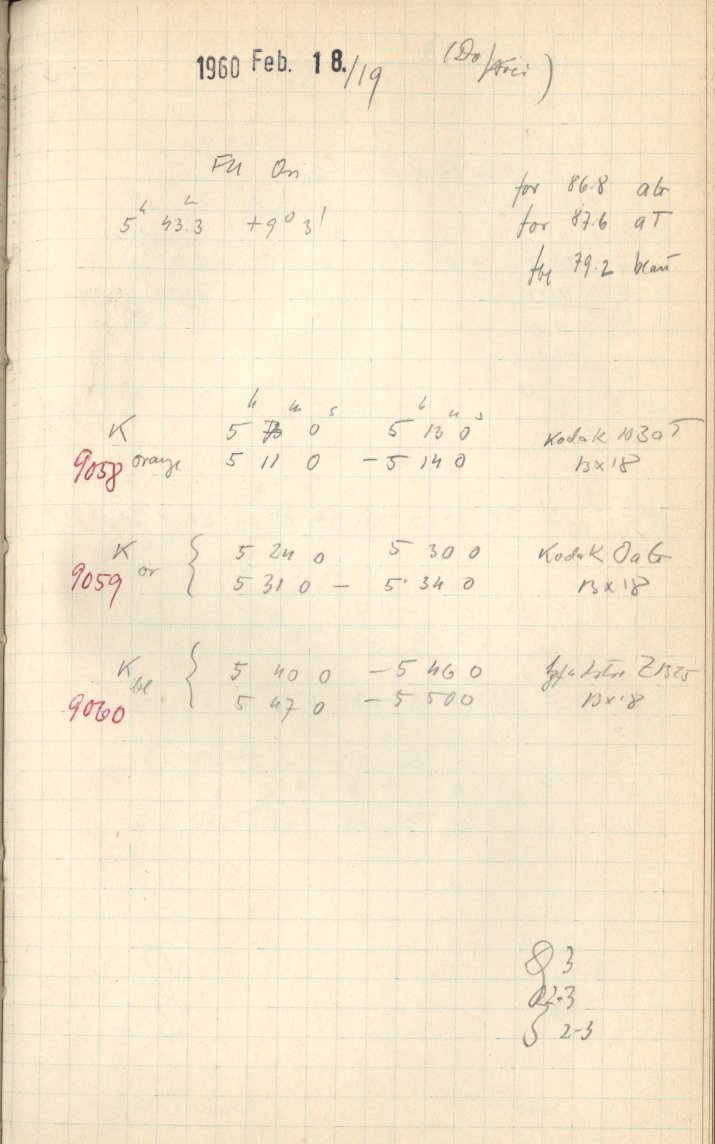 1960 Feb. 18./19
FU Ori
5h 43.3 +9° 3'
for 86.8 aG
for 87.6 aT
for 79.2 blau
h m s h m s
K 5 0 5 13 0 Kodak 103aT
9058 orange 5 11 0 - 5 14 0 13x18
K 5 24 0 5 30 0 Kodak OaG
9059 or 5 31 0 - 5 34 0 13x18
K bl 5 40 0 - 5 46 0
9060 5 47 0 - 5 50 0 13x18
3
2-3
2-3